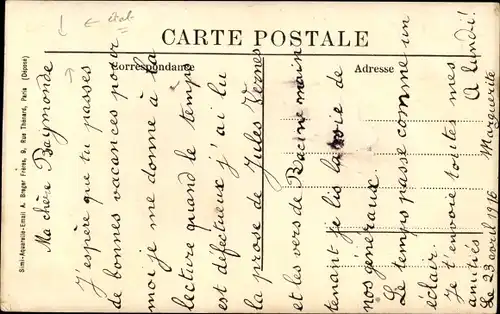 état
CARTE POSTALE
Correspondance
Adresse
Simi-Aquarelle-Email A. Breger Frères, 9, Rue Thénard, Paris (Déposé)
Ma chère Raymonde
J'espère que tu passes
de bonnes vacances pour
moi je me donne à la
lecture quand le temps
est défectueux j'ai lu
la prose de Jules Vernes
et les vers de Racine main
tenant je lis la vie de
nos généraux.
Le temps passe comme un
éclair.
Je t'envoie toutes mes
amitiés A lundi!
Le 23 avril 1916 Marguerite